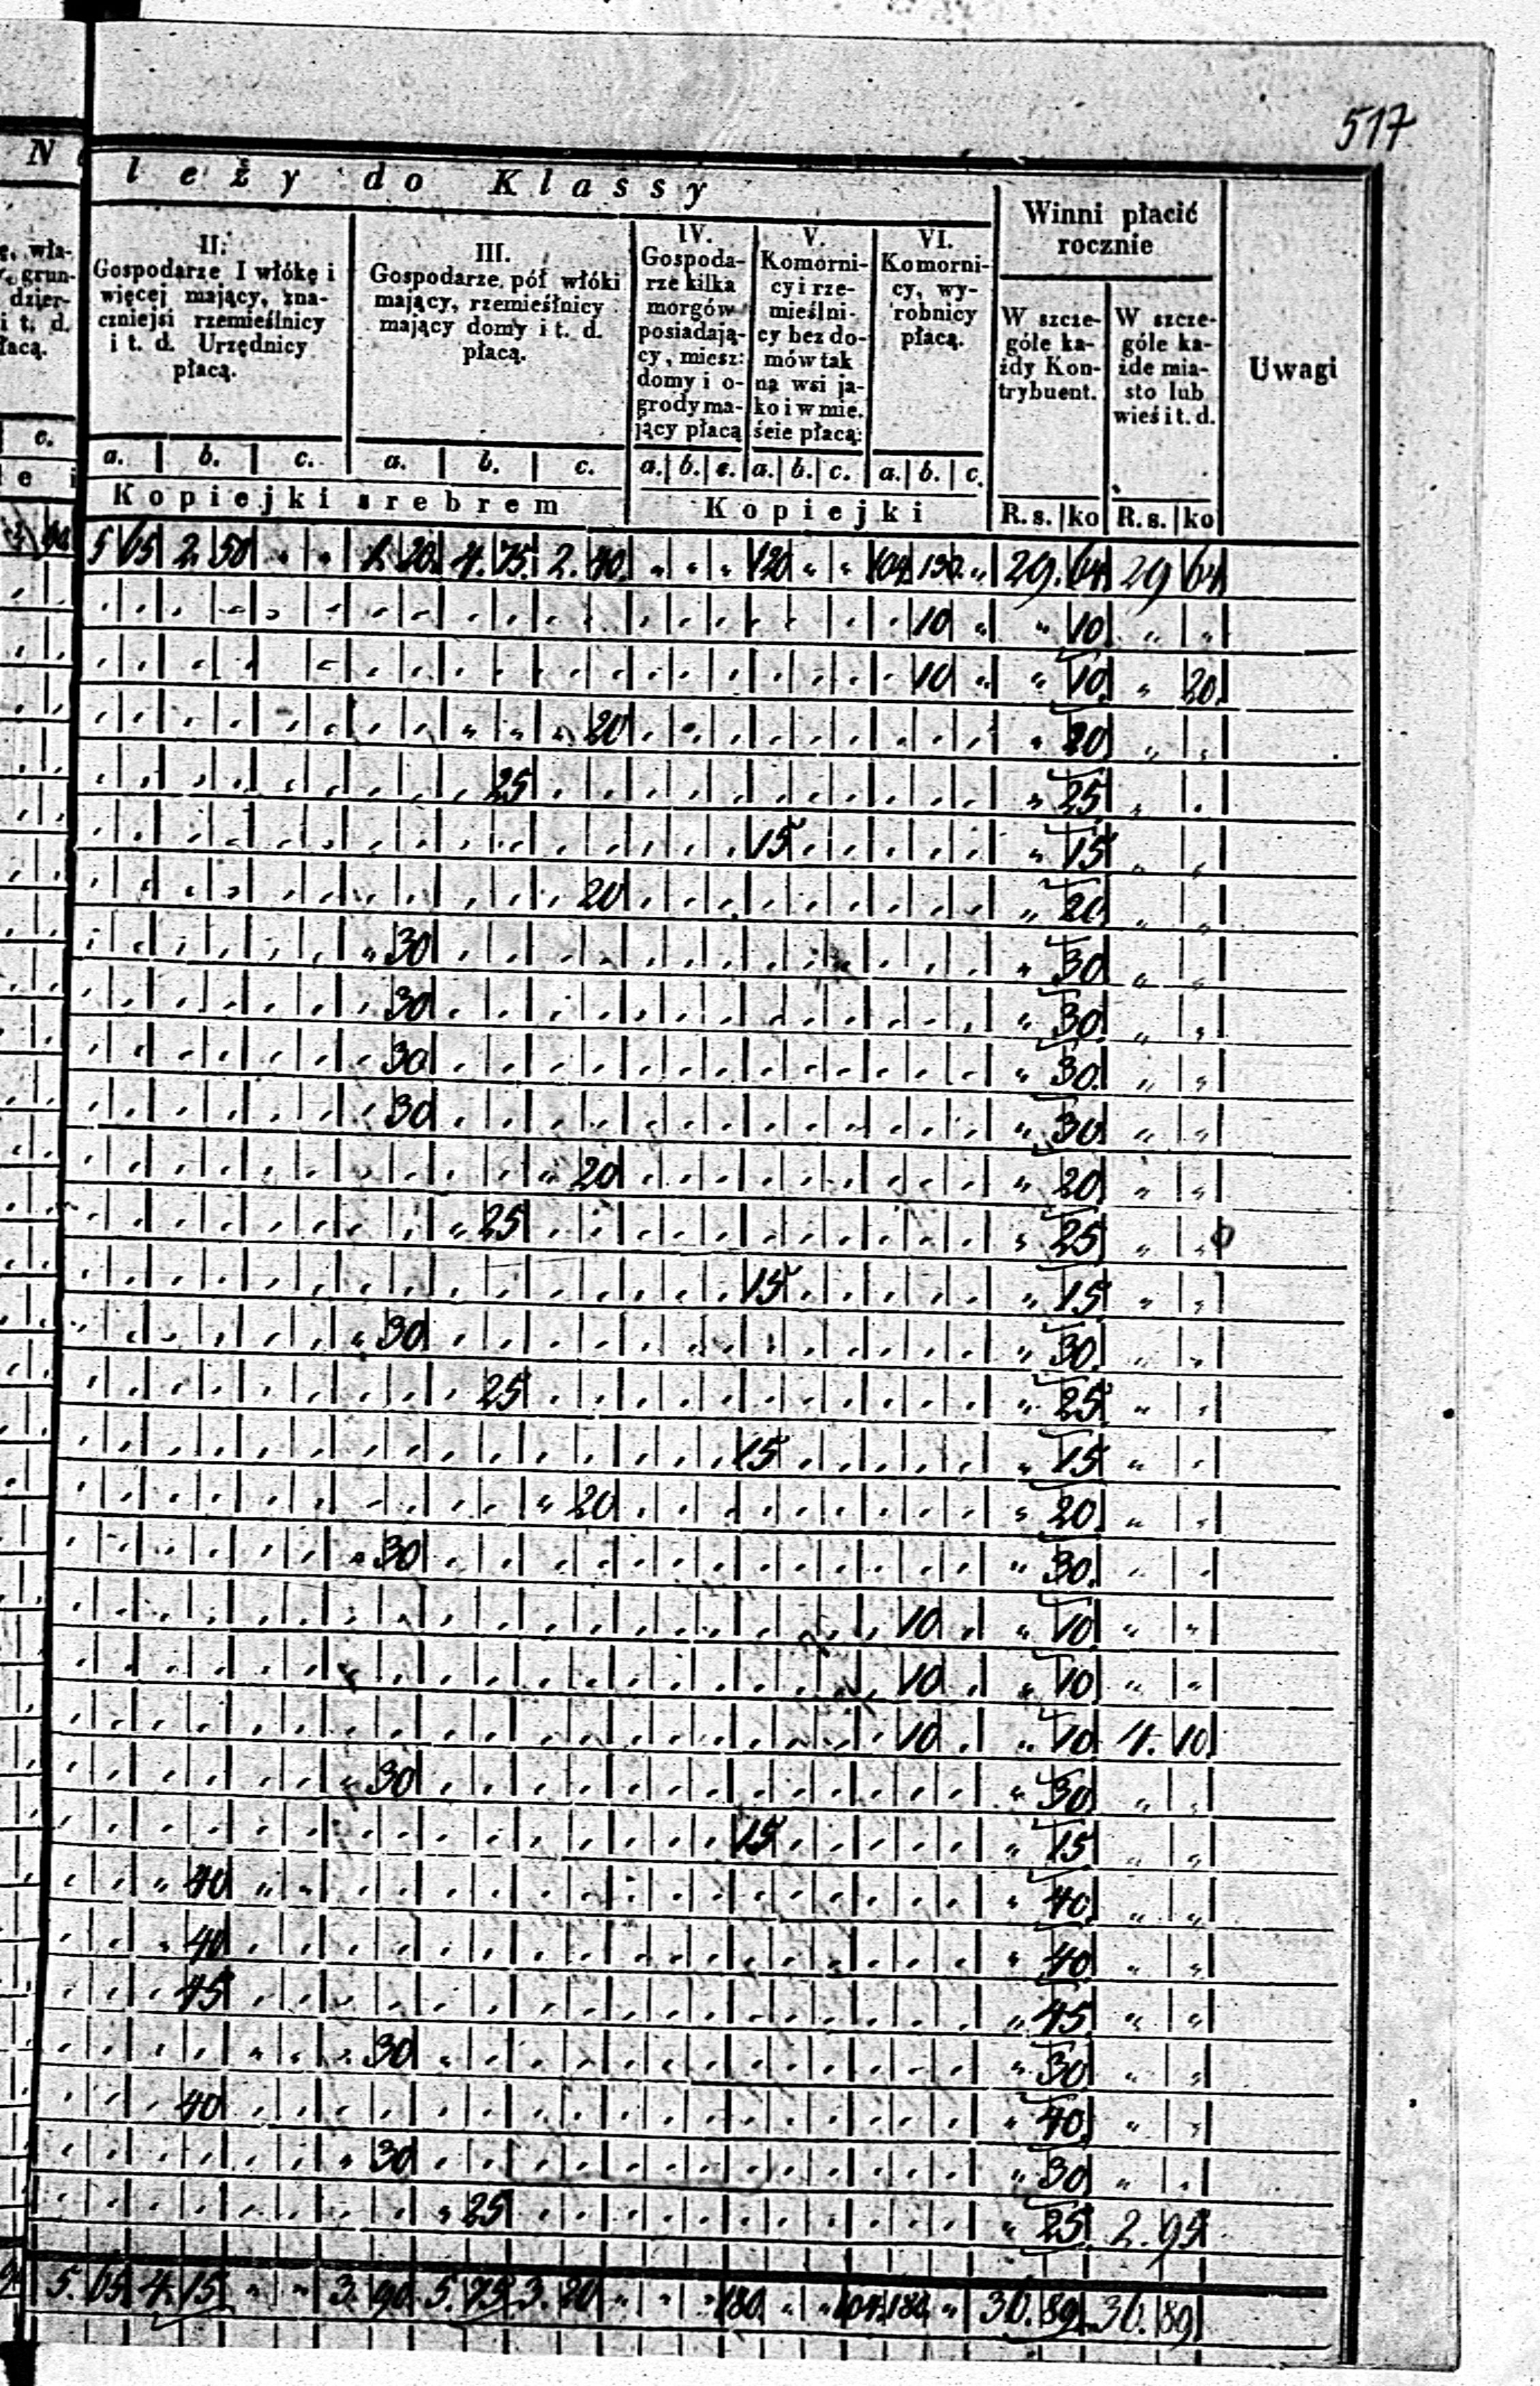 517
N
leży do Klassy
Winni płacić
rocznie
Uwagi
II.
Gospodarze I włókę i
więcej mający, zna-
czniejsi rzemieślnicy
i t. d. Urzędnicy
płacą.
III.
Gospodarze, pół włóki
mający, rzemieślnicy
mający domy i t. d.
płacą.
IV.
Gospoda-
rze kilka
morgów
posiadają-
cy, miesz:
domy i o-
grody ma-
jący płacą
V.
Komorni-
cy i rze-
mieślni-
cy bez do-
mów tak
na wsi ja-
ko i w mie-
ście płacą:
VI.
Komorni-
cy, wy-
robnicy
płacą.
W szcze-
góle ka-
żdy Kon-
trybuent.
W szcze-
góle ka-
żde mia-
sto lub
wieś i t. d.
c. a. b. c. a. b. c. a. b. c. a. b. c. a. b. c.
Kopiejki srebrem Kopiejki R. s. ko R. s. ko
5 65 2. 50 " " 4. 75. 2. 40. " " " 120 " " 104 150 " 29. 64 29 64
10 " " 10 " "
10 " " 10 " 20.
20 " 20 " "
25 " 25 " "
15 " 15 " "
20 " 20 " "
" 30 " 30 " "
30 " 30 " "
30 " 30 " "
30 " 30 " "
" 20 " 20 " "
" 25 " 25 " "
15 " 15 " "
" 30 " 30 " "
25 " 25 " "
15 " 15 " "
" 20 " 20 " "
" 30 " 30 " "
10 " 10 " "
10 " 10 " "
10 " 10 4. 10
" 30 " 30 " "
15 " 15 " "
" 40 " " " 40 " "
40 " 40 " "
45 " 45 " "
30 " 30 " "
40 " 40 " "
" 30 " 30 " "
" 25 " 25 2. 95
5. 65 4. 15 " " 3. 90 5. 75 3. 20 " " " 180 " " 104 180 " 36. 89 36. 89